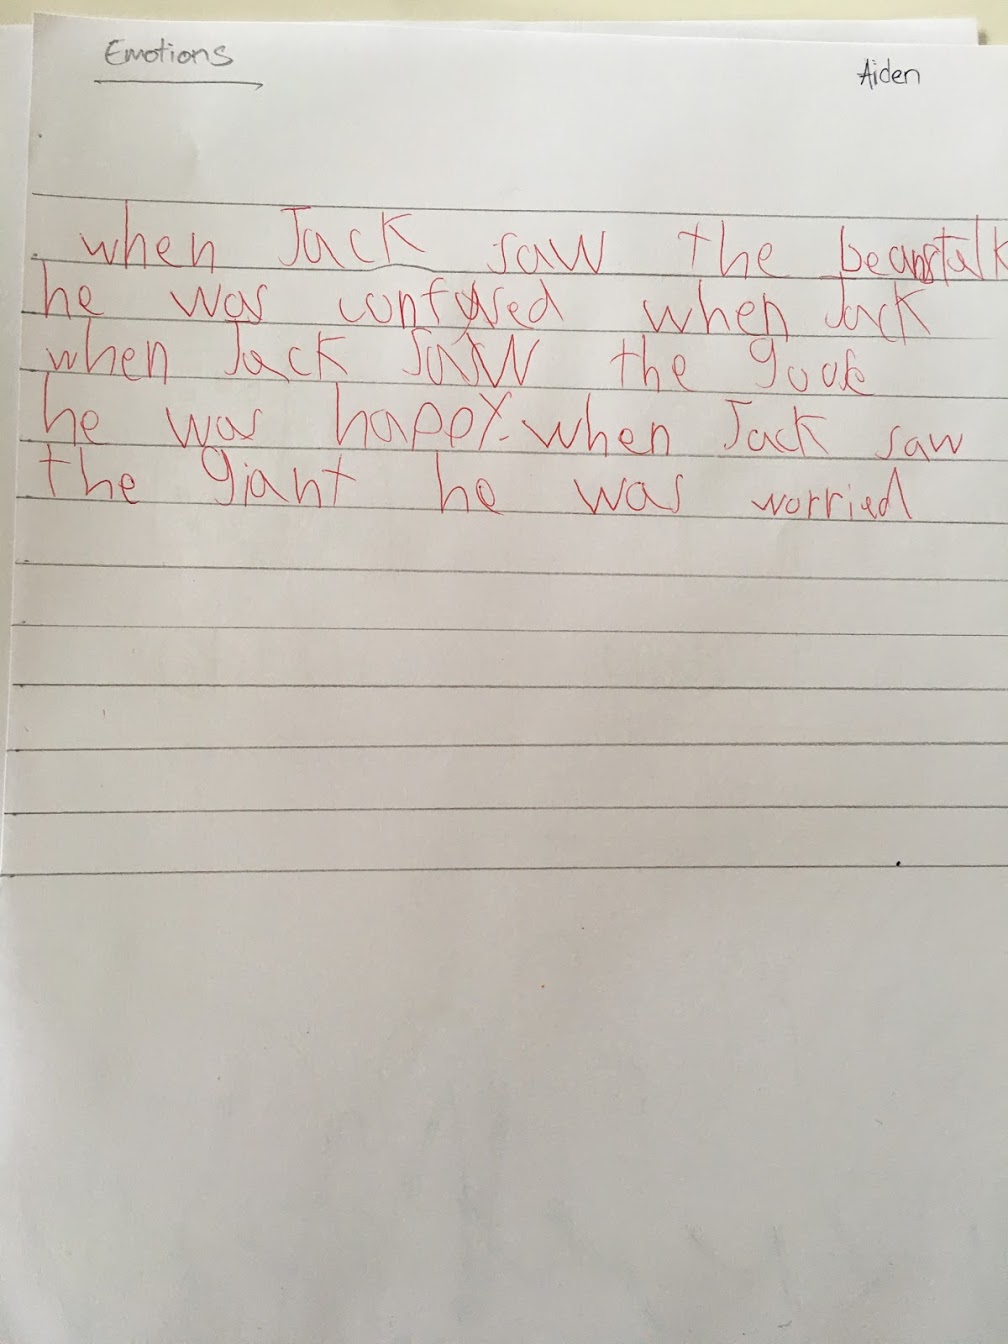 Emotions
Aiden
when Jack saw the beanstalk
he was confused when Jack
when Jack saw the
he was happy. when Jack saw
the giant he was worried